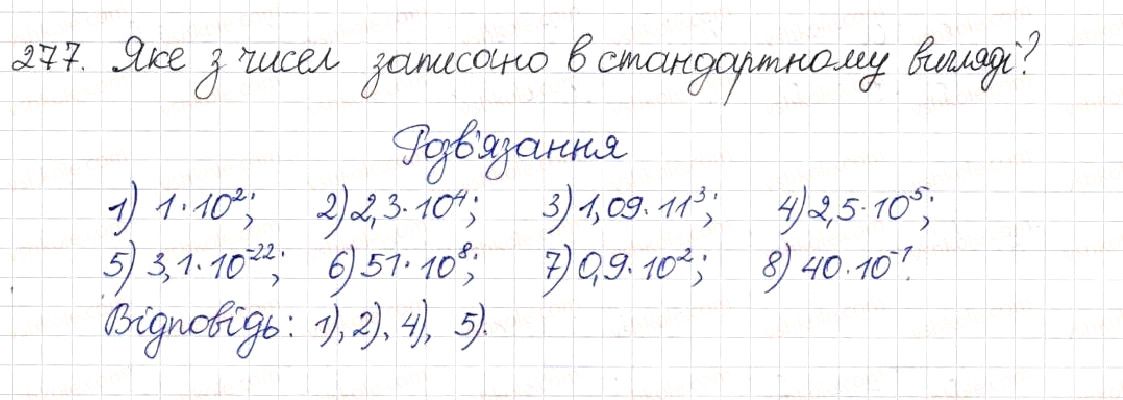 277. Яке з чисел записано в стандартному вигляді?
Розв'язання
1) 1·10²; 2) 2,3·10⁴; 3) 1,09·11³; 4) 2,5·10⁵;
5) 3,1·10⁻²²; 6) 51·10⁸; 7) 0,9·10²; 8) 40·10⁻¹.
Відповідь: 1), 2), 4), 5).